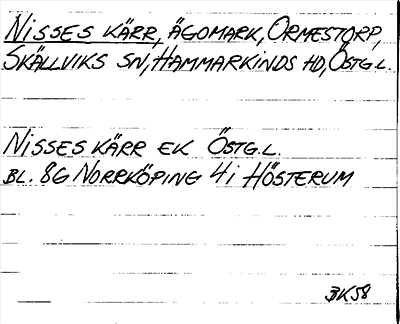 NISSES KÄRR, ÄGOMARK, ORMESTORP,
SKÄLLVIKS SN, HAMMARKINDS HD, ÖSTGL.
NISSES KÄRR EK ÖSTGL.
BL. 8G NORRKÖPING 4i HÖSTERUM
BK58